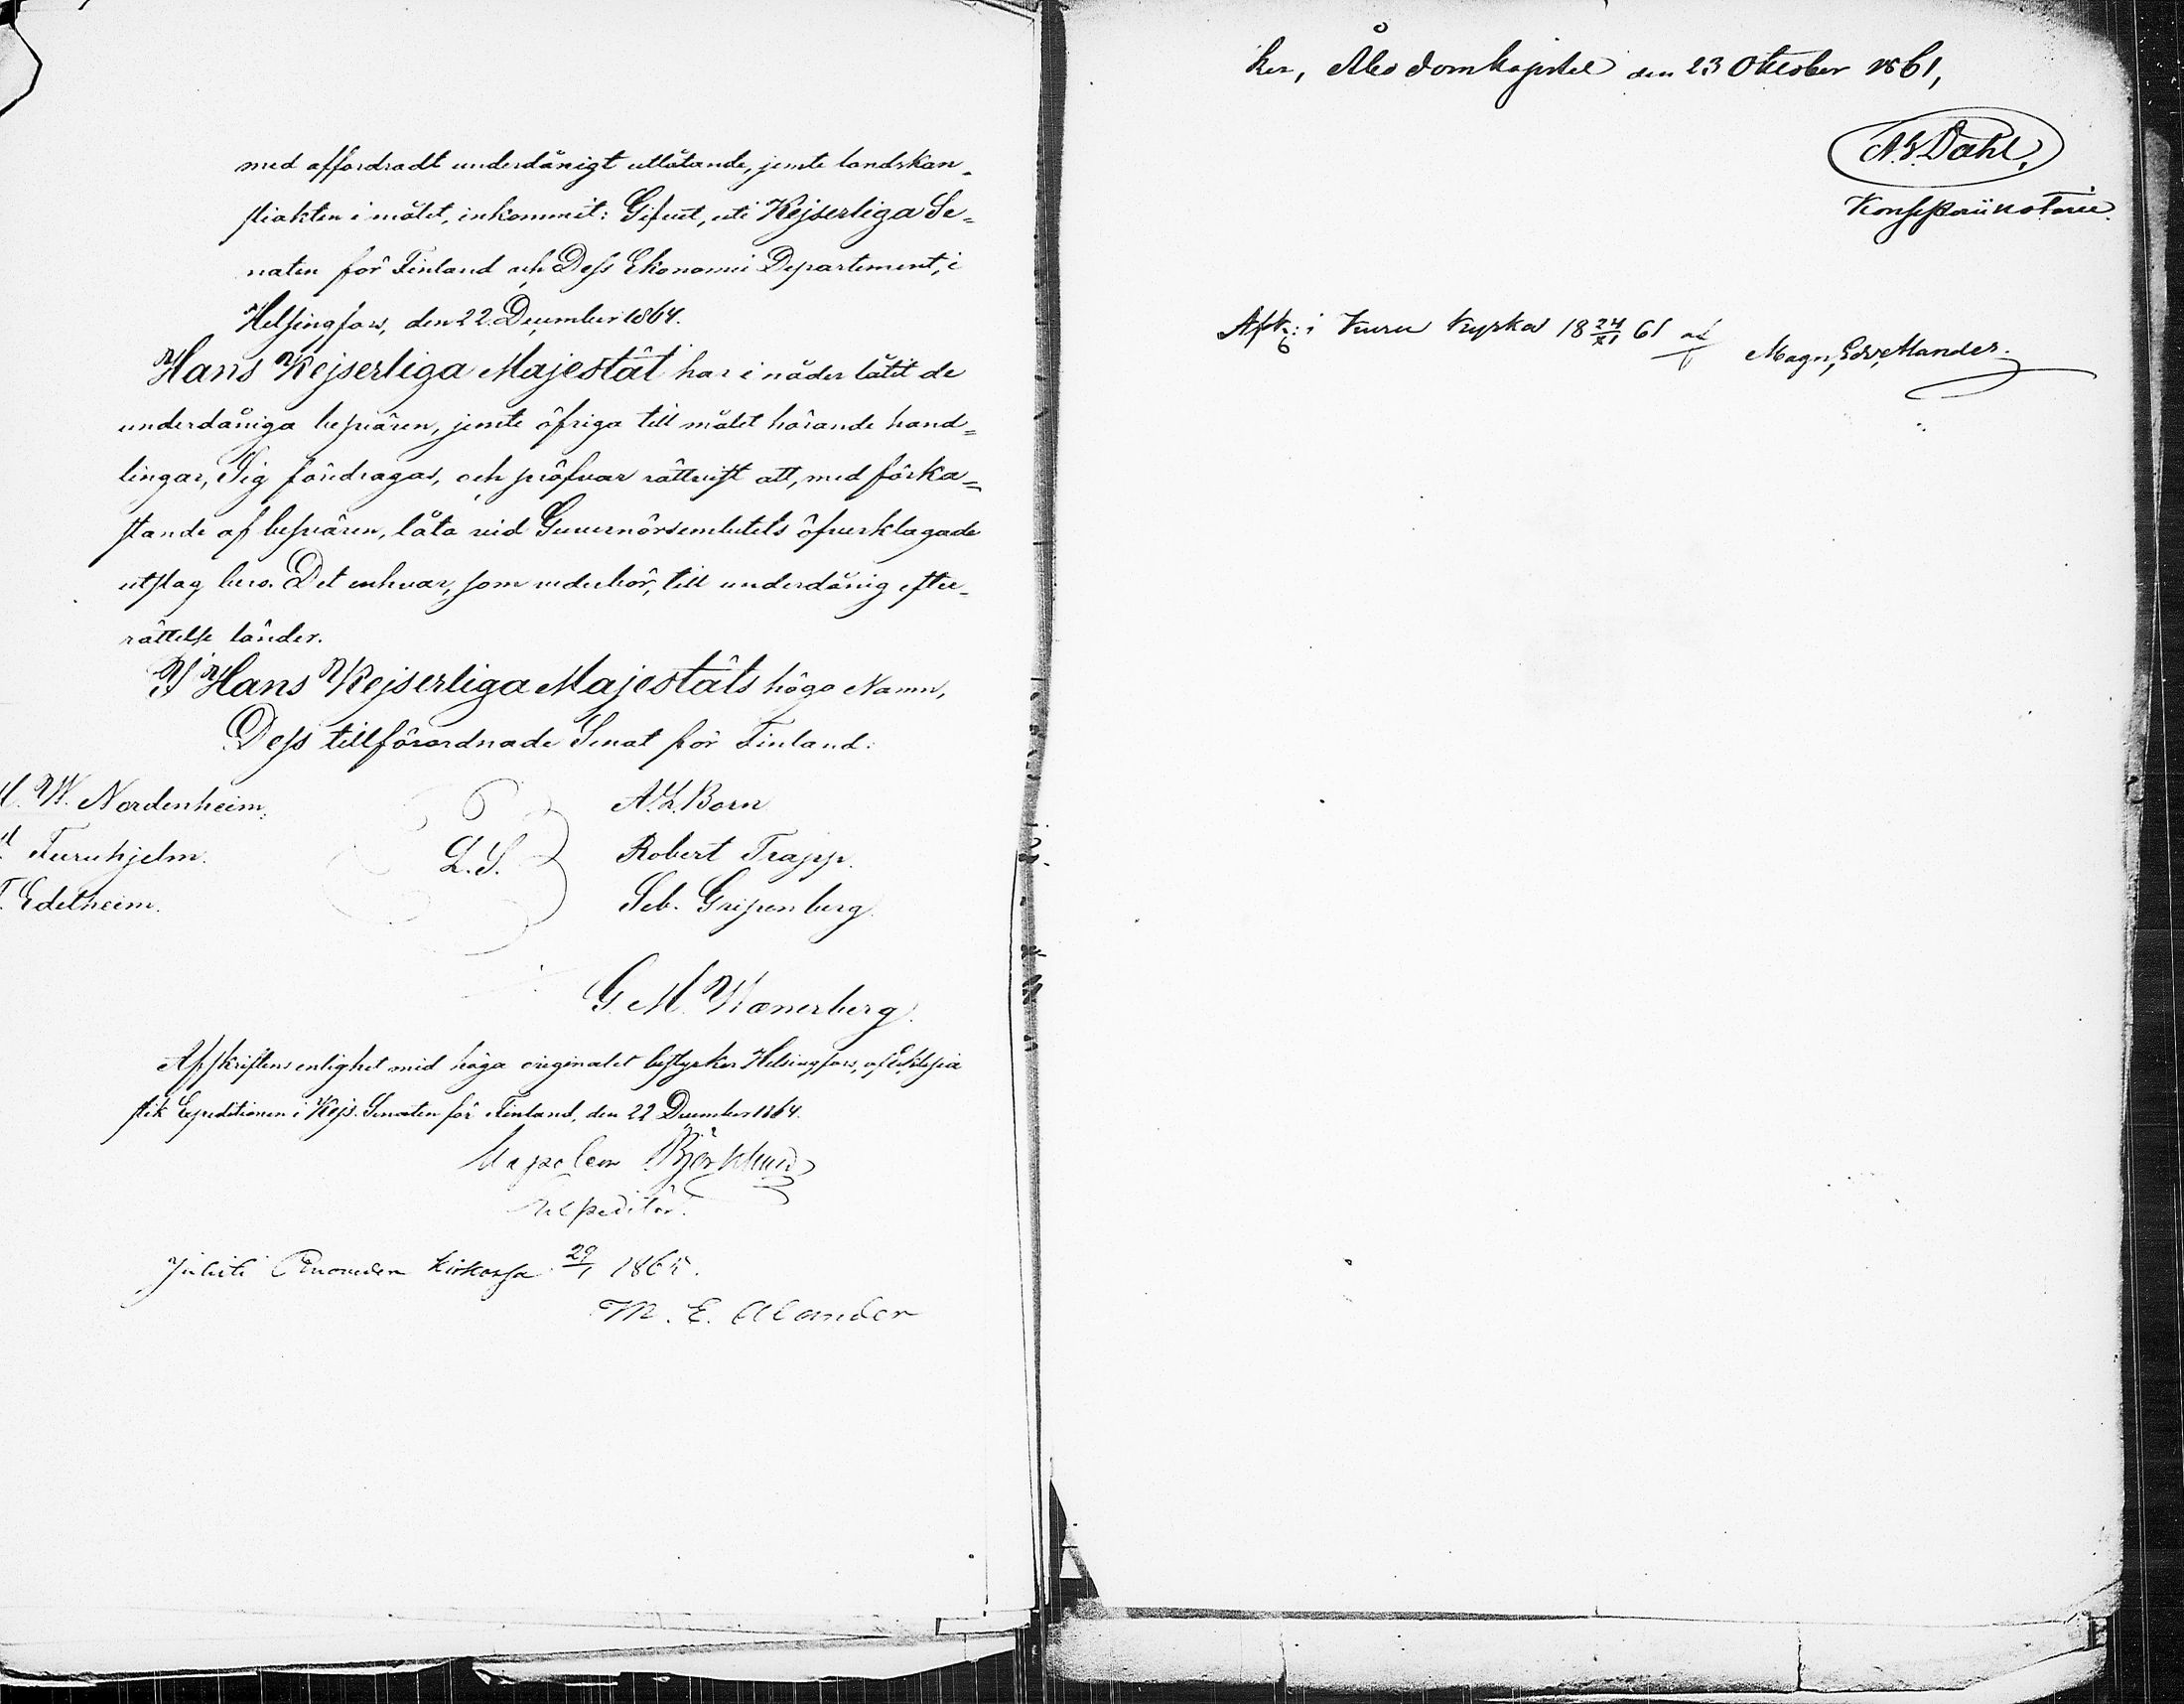 med affordradt underdånigt utlåtande, jemte landskan-
sliakten i målet, inkommit: Gifvet, uti Kejserliga Se=
naten för Finland och Dess Ekonomie Departement, i
Helsingfors, den 22. December 1864.
Hans Kejserliga Majestät har i nåder låtit de
underdåniga besvären, jemte öfriga till målet hörande hand=
lingar, Sig föredragas, och pröfvar rättvist att, med förka=
stande af besvären, låta vid Guvernörsembetets öfverklagade
utslag bero. Det enhvar, som vederbör, till underdånig efter-
rättelse länder.
I Hans Kejserliga Majestäts höga Namn,
Dess tillförordnade Senat för Finland:
W. Nordenheim.
Furuhjelm.
Edelheim.
L.S.
A. L. Born
Robert Trapp.
Seb. Gripenberg.
G. M. Wænerberg.
Afskriftens enlighet med höga originalet bestyrker Helsingfors, af Eklesia
stik Expeditionen i Kejs. Senaten för Finland, den 22 December 1864.
Napoleon Björklund
Expeditör.
Julisti Ruoveden kirkossa 29/1 1865.
M. E. Alander
ker, Åbo domkapitel den 23 Oktober 1861,
Dahl,
Konsistorii notarie.
i Kuru kyrka 18 24/XI 61 af Magn, Edv, Alander.